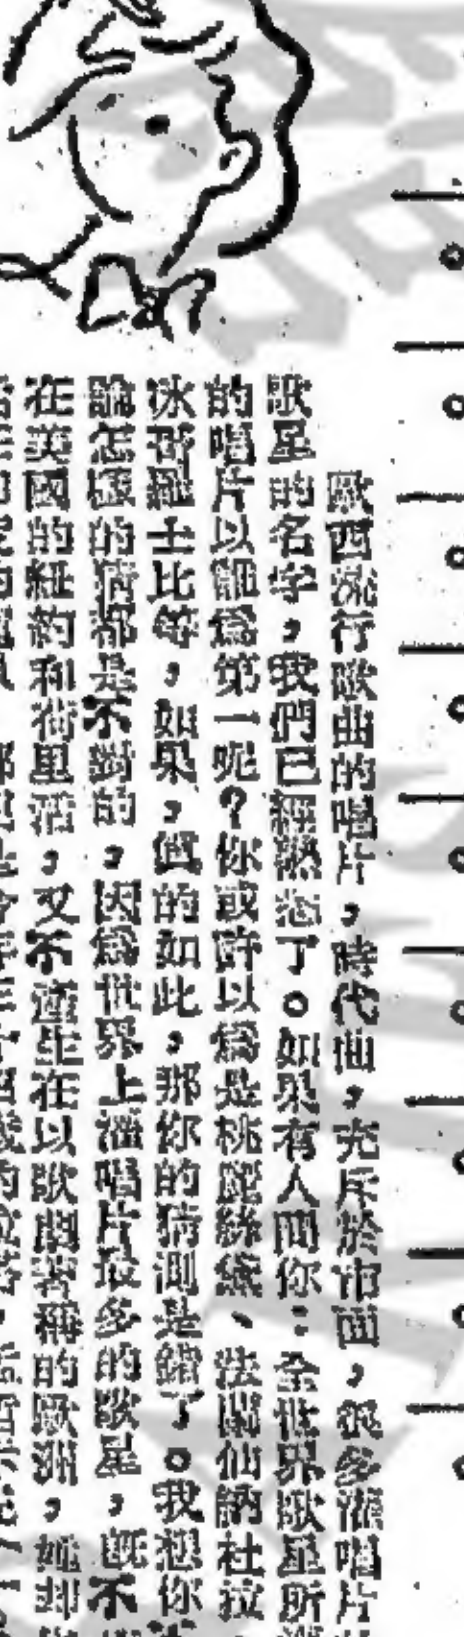 歐西流行歌曲的唱片，時代曲，充斥於市面，很多灌唱片
歌星的名字，我們已經熟悉了。如果有人問你：全世界歌星所灌
的唱片以誰爲第一呢？你或許以爲是桃麗絲黛、法蘭仙納杜拉
冰哥羅士比等，如果，眞的如此，那你的猜測是錯了。我想你
論怎樣的猜都是不對的，因爲世界上灌唱片最多的歌星，旣不
在美國的紐約和荷里活，又不產生在以歌劇著稱的歐洲，她却